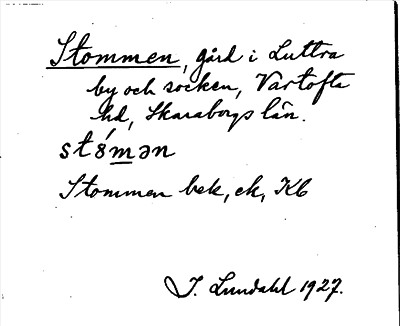 Stommen, gård i Luttra
by och socken, Vartofta
hd, Skaraborgs län.
st8́mən
Stommen bek, ek, Kb
I. Lundahl 1927.